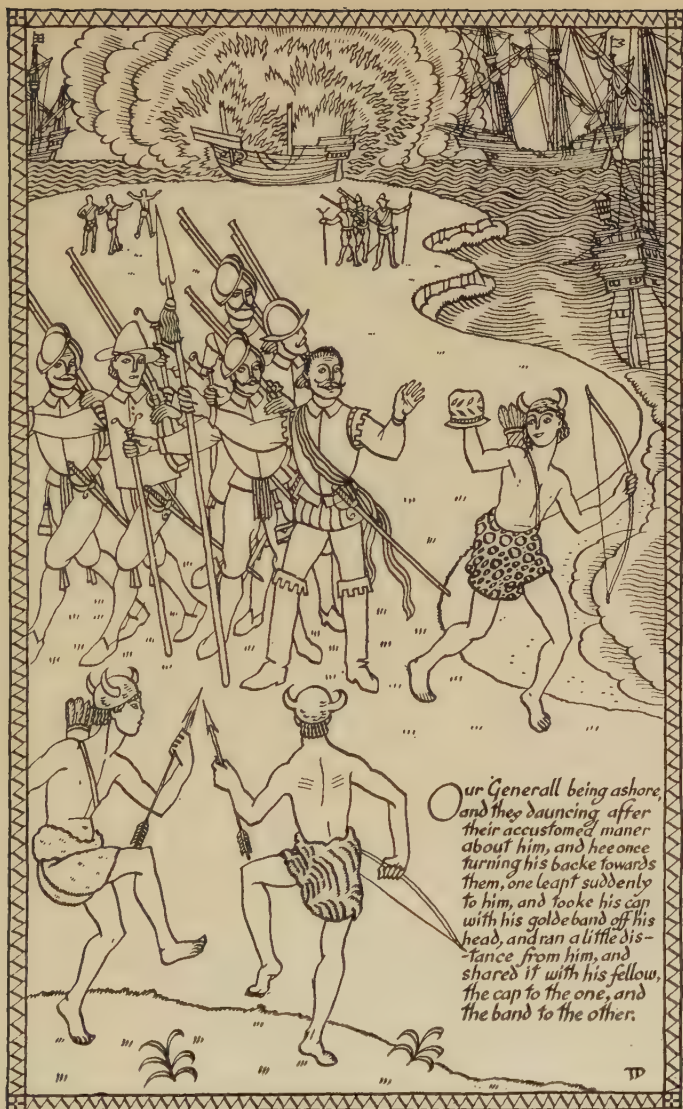 Our Generall being ashore,
and they dauncing after
their accustomed maner
about him, and hee once
turning his backe towards
them, one leapt suddenly
to him, and tooke his cap
with his golde band off his
head, and ran a little dis-
-tance from him, and
shared it with his fellow,
the cap to the one, and
the band to the other.
TD